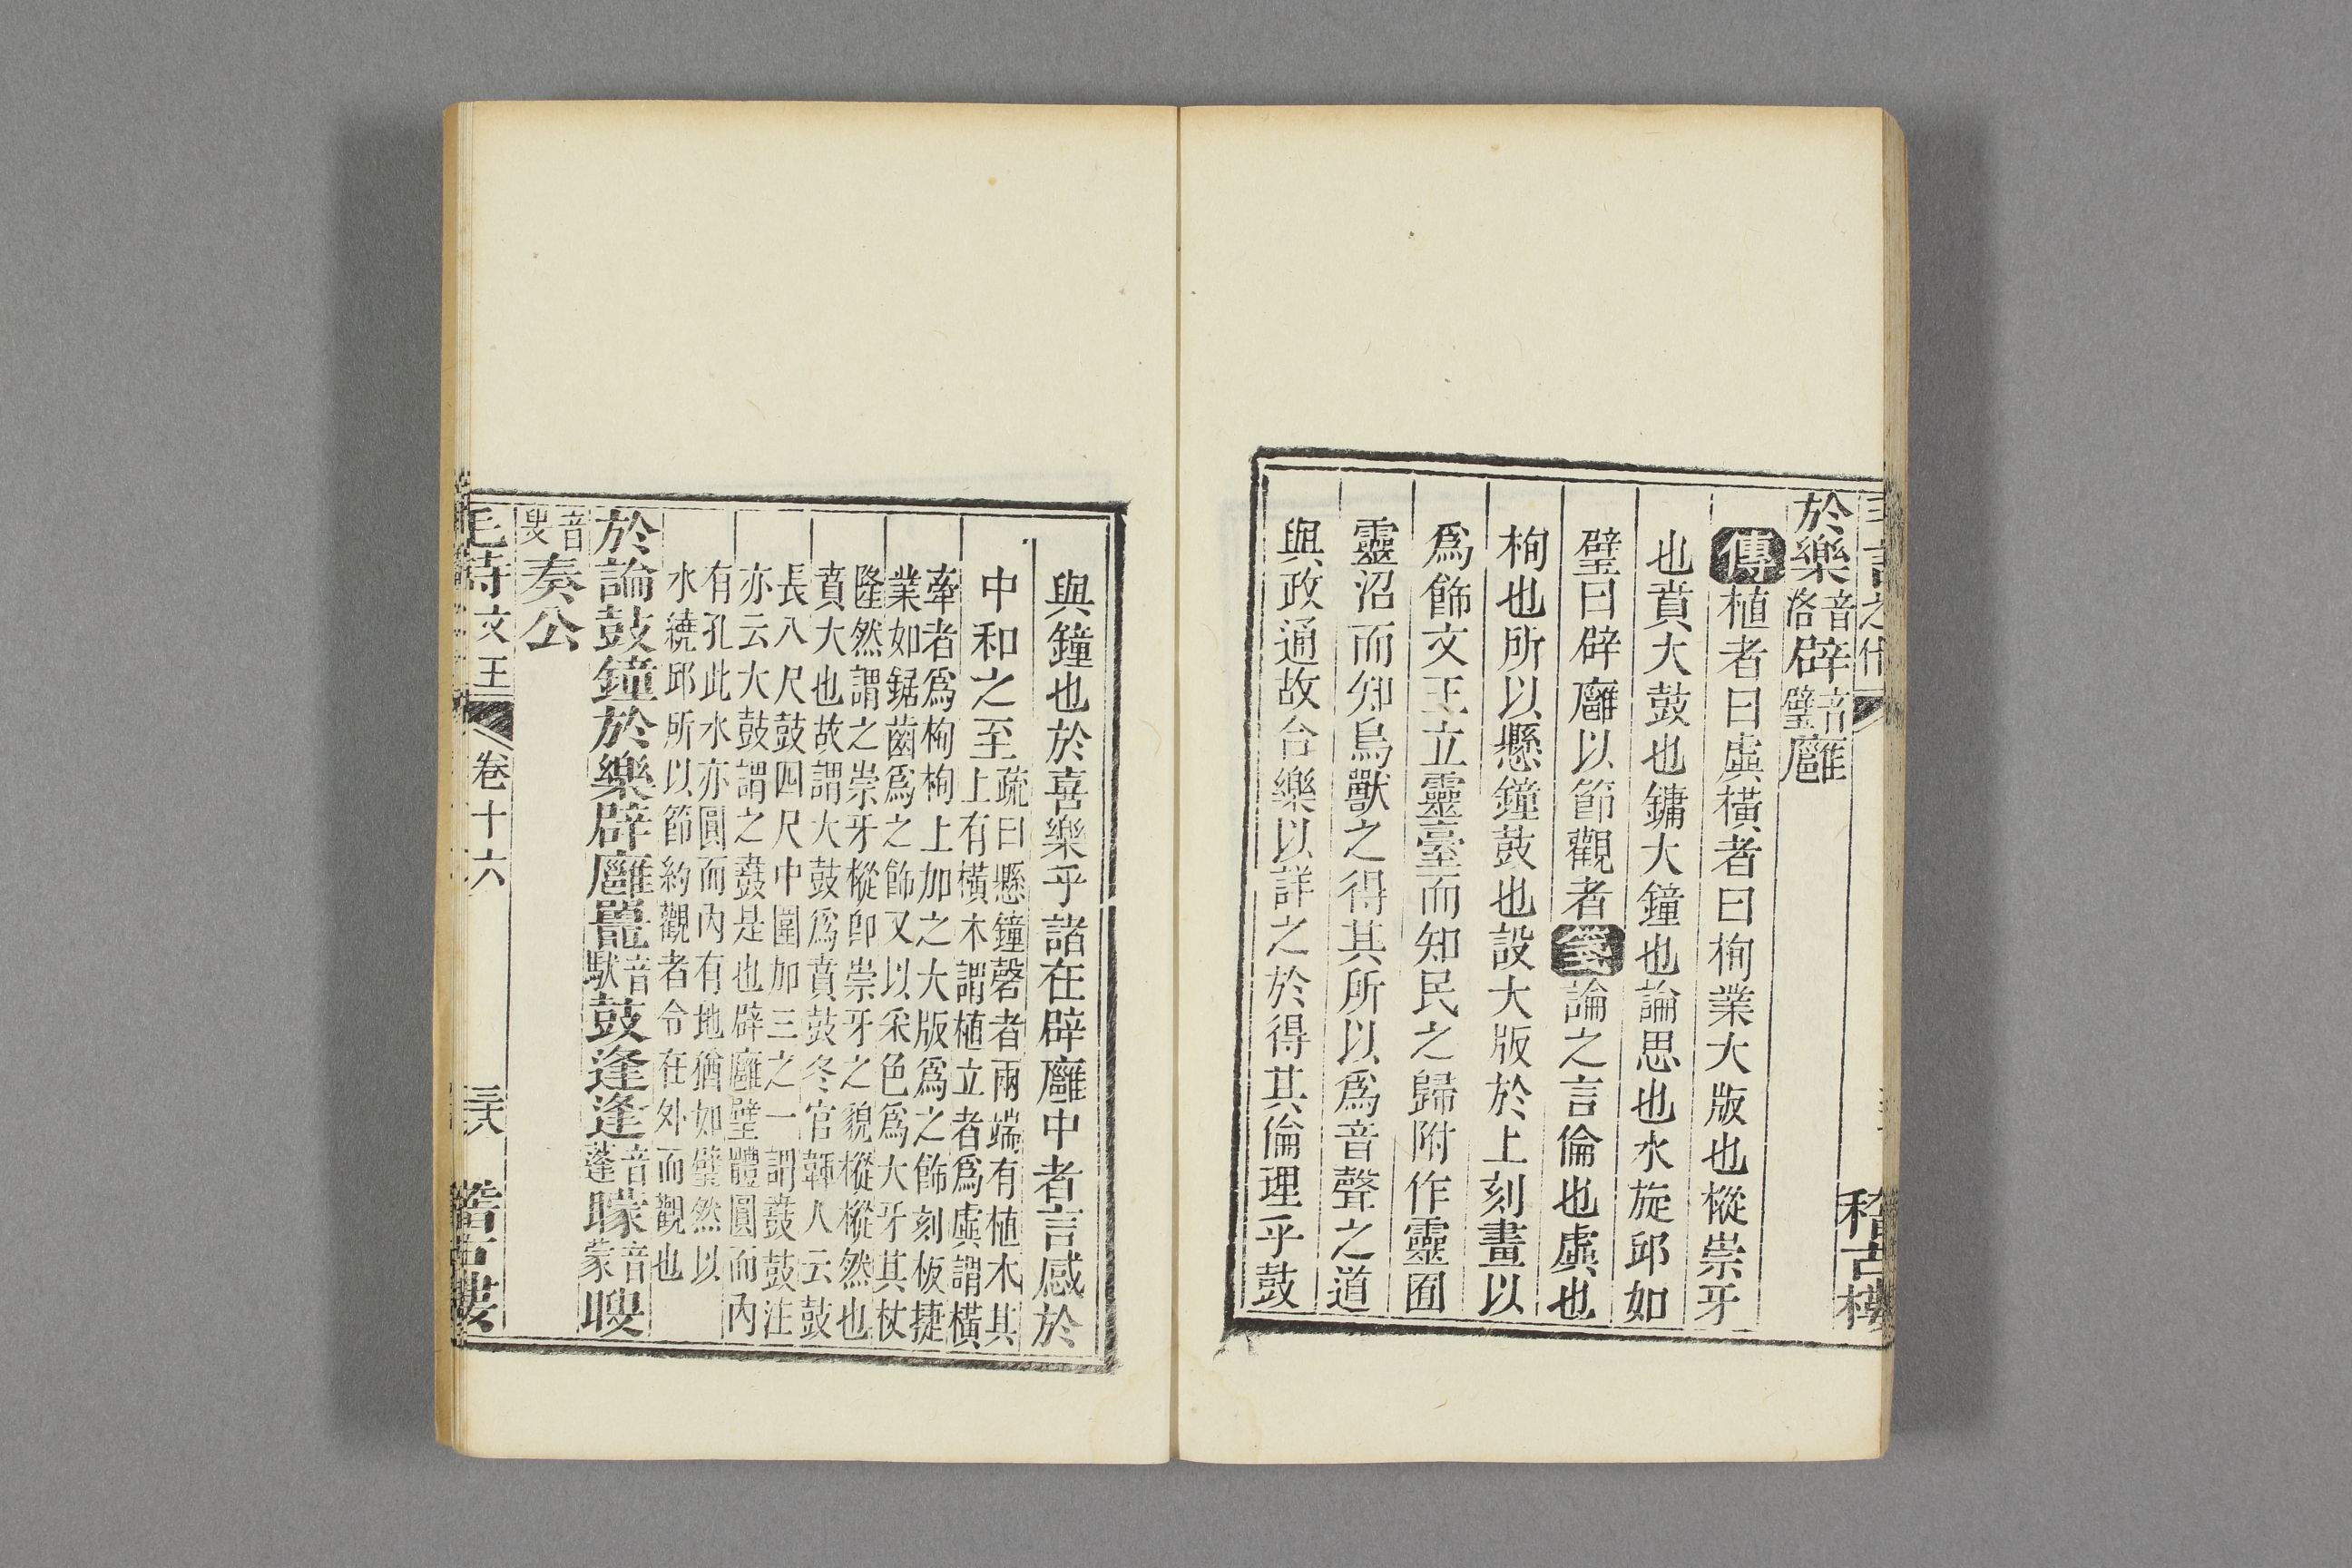 於樂音洛辟音璧廱
傳植者曰虡橫者曰栒業大版也樅崇牙
也賁大鼓也鏞大鐘也論思也水旋邱如
璧曰辟廱以節觀者箋論之言倫也虡也
栒也所以懸鐘鼓也設大版於上刻畫以
爲飾文王立靈臺而知民之歸附作靈囿
靈沼而知鳥獸之得其所以爲音聲之道
與政通故合樂以詳之於得其倫理乎鼓
稽古樓
與鐘也於喜樂乎諸在辟廱中者言感於
中和之至
疏曰懸鐘磬者兩端有植木其
上有橫木謂植立者爲虡謂橫
牽者爲栒栒上加之大版爲之飾刻板捷
業如鋸齒爲之飾又以采色爲大牙其杖
隆然謂之崇牙樅卽崇牙之貌樅樅然也
賁大也故謂大鼓爲賁鼓冬官韗人云鼓
長八尺鼓四尺中圍加三之一謂鼖鼓注
亦云大鼓謂之鼖是也辟廱璧體圓而內
有孔此水亦圓而內有地猶如璧然以
水繞邱所以節約觀者令在外而觀也
於論鼓鐘於樂辟廱鼉音馱鼓逢逢音蓬矇音蒙瞍
音叟奏公
毛詩 文王 卷十六 三六 稽古樓